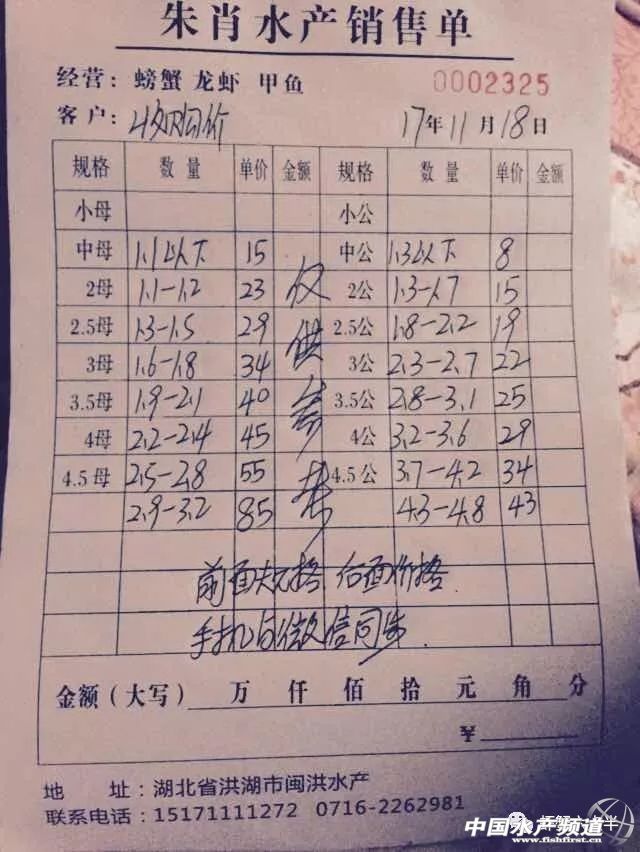 朱肖水产销售单
经营：螃蟹 龙虾 甲鱼 0002325
客户：收购价 17年11月18日
规格 数量 单价 金额 规格 数量 单价 金额
小母 小公
中母 1.1以下 15 中公 1.3以下 8
2母 1.1-1.2 23 2公 1.3-1.7 15
2.5母 1.3-1.5 29 2.5公 1.8-2.2 19
3母 1.6-1.8 34 3公 2.3-2.7 22
3.5母 1.9-2.1 40 3.5公 2.8-3.1 25
4母 2.2-2.4 45 4公 3.2-3.6 29
4.5母 2.5-2.8 55 4.5公 3.7-4.2 34
2.9-3.2 85 4.3-4.8 43
仅供参考
前面规格 后面价格
手机与微信同步
金额（大写） 万 仟 佰 拾 元 角 分
¥
地 址：湖北省洪湖市闽洪水产
联系电话：15171111272 0716-2262981
中国水产频道
www.fishfirst.cn